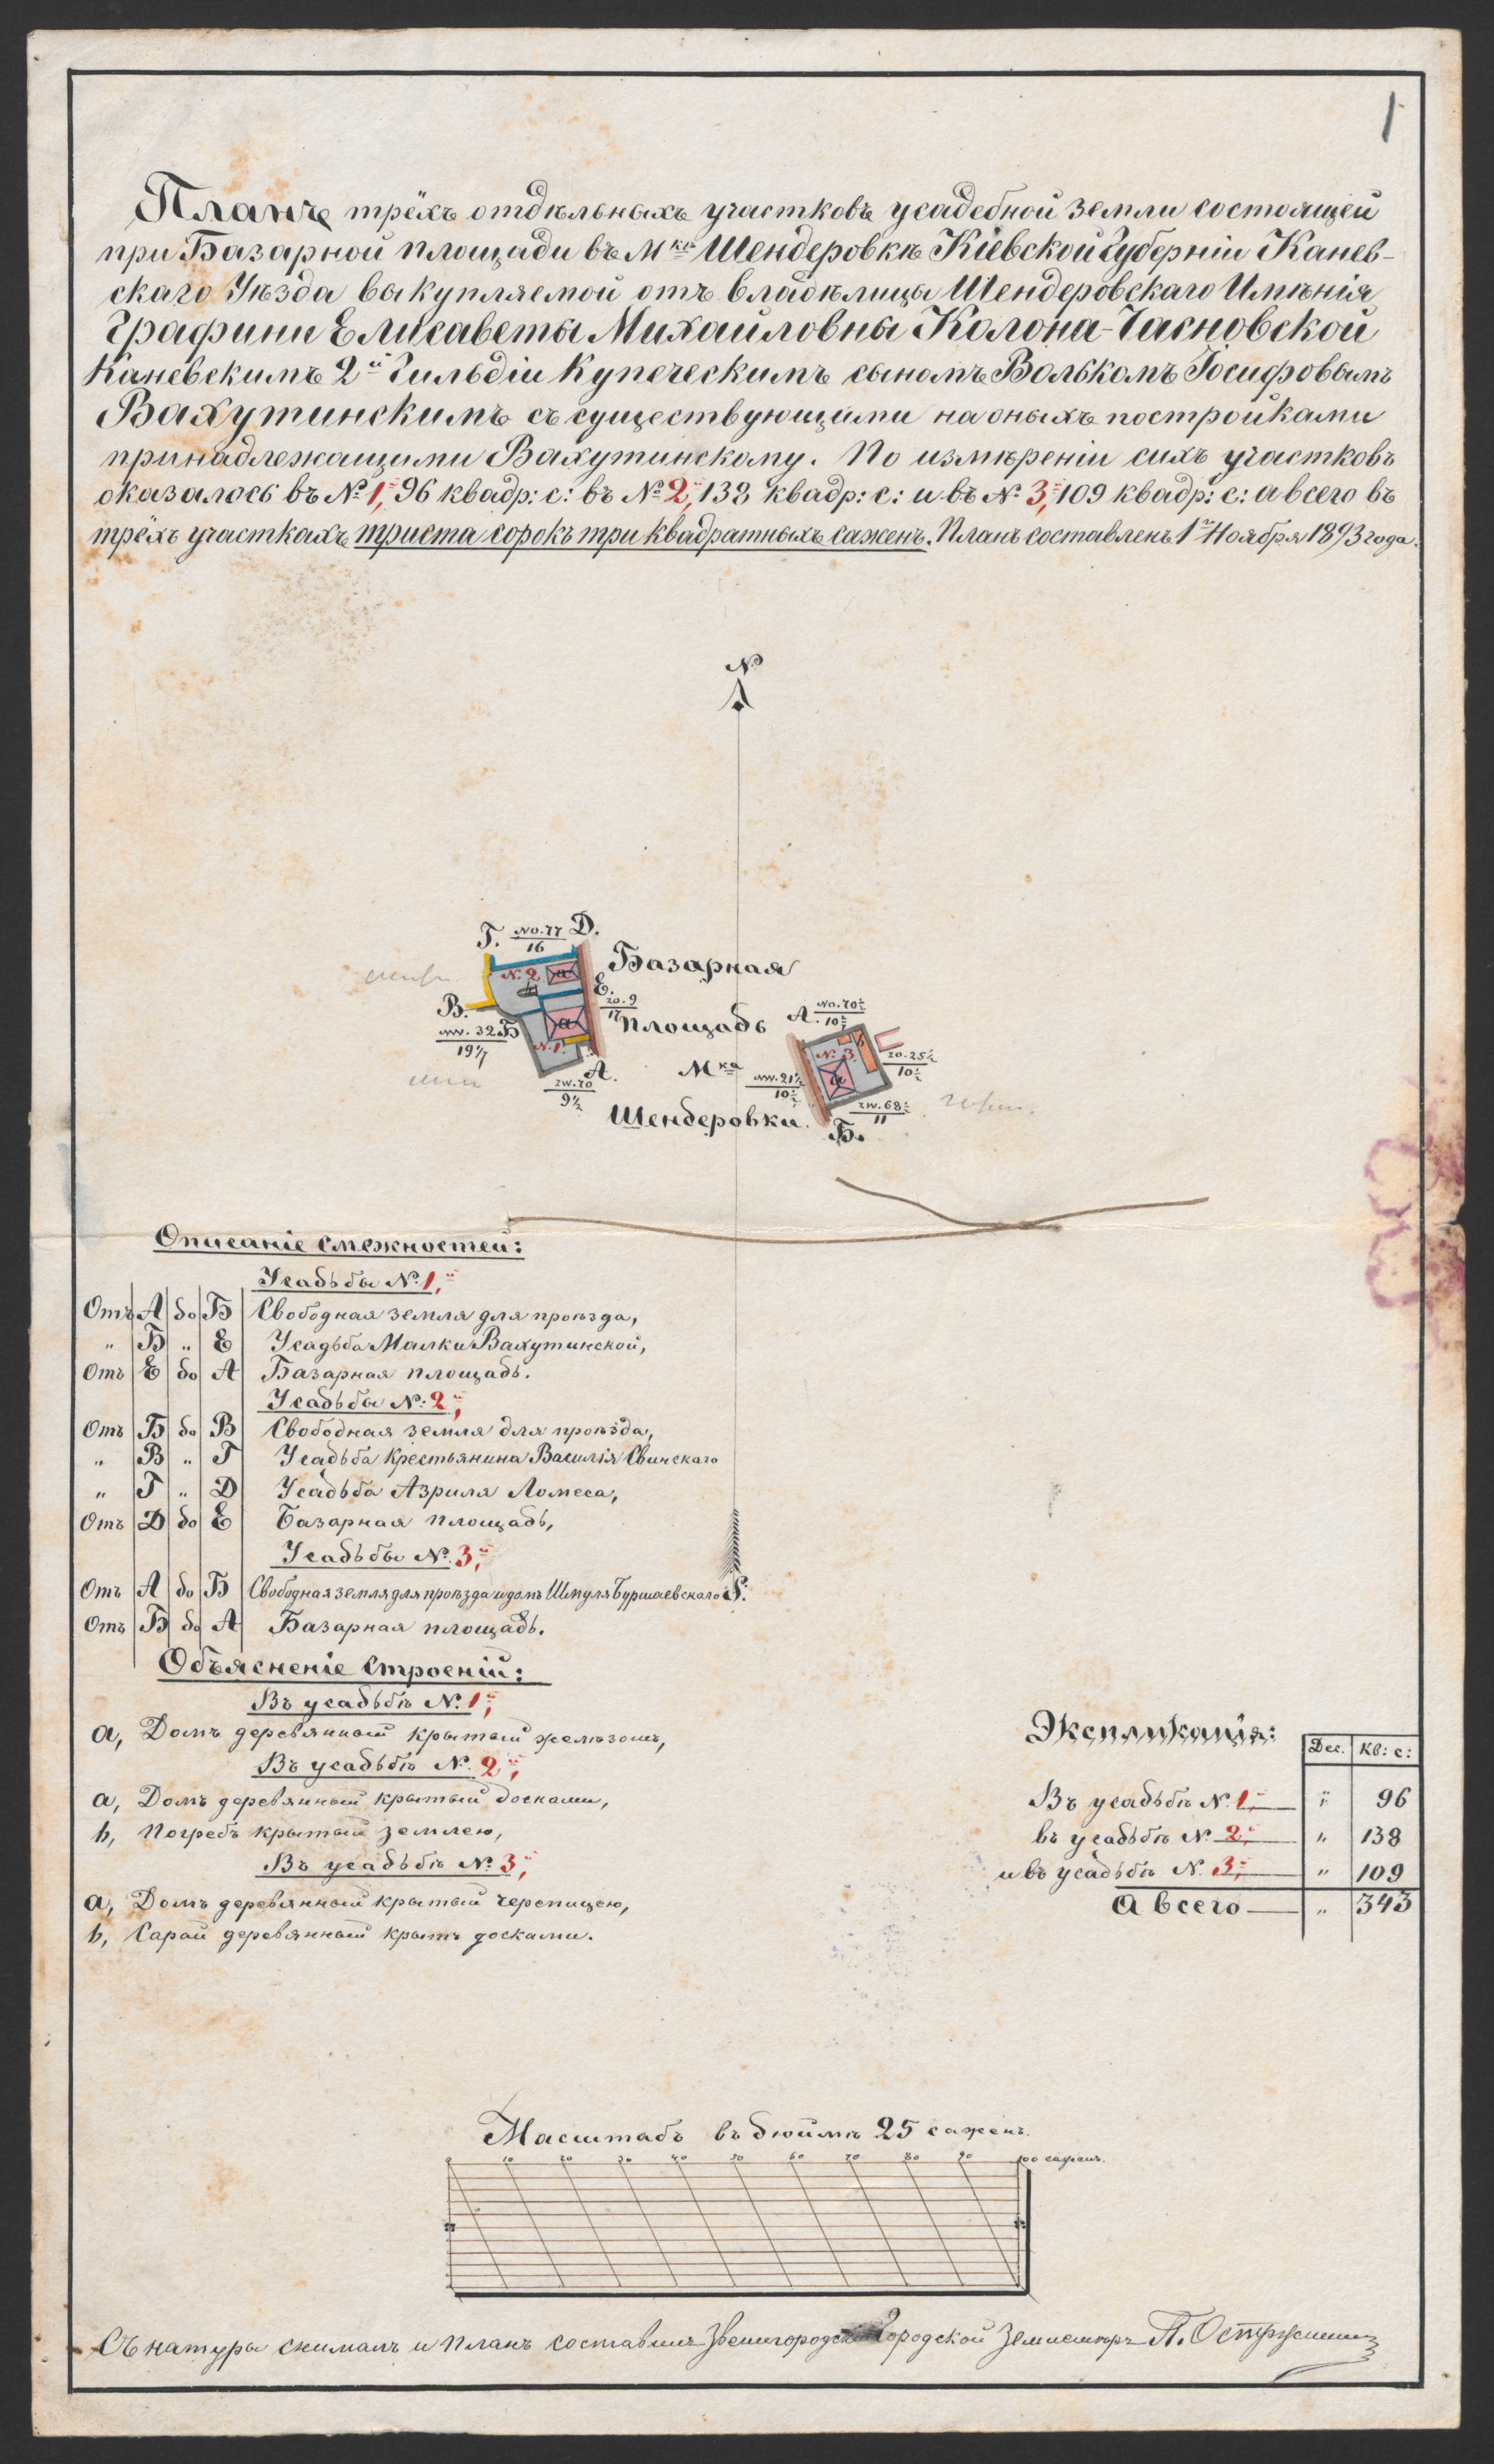 1
Планъ трёхъ отдѣльныхъ участковъ усадебной земли состоящей
при Базарной площади въ Мкѣ Шендеровкѣ Кіевской Губерніи Канев-
скаго Уѣзда выкупляемой отъ владѣлицы Шендеровскаго Имѣнія
Графини Елисаветы Михайловны Колона-Часновской
Каневскимъ 2й Гильдіи Купеческимъ сыномъ Волькомъ Іосифовымъ
Вахутинскимъ съ существующими на оныхъ постройками
принадлежащими Вахутинскому. По измѣреніи сихъ участковъ
оказалось въ № 1й, 96 квадр: с: въ № 2й, 138 квадр: с: и въ № 3й, 109 квадр: с: а всего въ
трёхъ участкахъ триста сорокъ три квадратныхъ сажень. Планъ составленъ 1го Ноября 1893 года.
N
Г. NO.77 Д.
16
Базарная
N. 2 a
Е.
b
ZO. 9
17
В.
NW. 32 Б
19 1/7
a
N. 1.
А.
ZW. 20
9 1/2
Площадь
А. NO. 70 1/2
10 1/2
Мка
NW. 21 1/2
10 1/2
N. 3. b
a
ZO. 25 1/2
10 1/2
ZW. 68 1/2
11
Шендеровки.
Б.
Описаніе смежностей:
Усадьбы № 1й,
Отъ А до Б Свободная земля для проѣзда,
" Б " Е Усадьба Малки Вахутинской,
Отъ Е до А Базарная площадь.
Усадьбы № 2й,
Отъ Б до В Свободная земля для проѣзда,
" В " Г Усадьба крестьянина Василія Свинскаго
" Г " Д Усадьба Азриля Ломеса,
Отъ Д до Е Базарная площадь,
Усадьбы № 3й,
Отъ А до Б Свободная земля для проѣзда и домъ Шмуля Буршаевскаго S.
Отъ Б до А Базарная площадь.
Объясненіе строеній:
Въ усадьбѣ № 1й,
a, Домъ деревянный крытый желѣзомъ,
Въ усадьбѣ № 2й,
a, Домъ деревянный крытый досками,
b, Погребъ крытый землею,
Въ усадьбѣ № 3й,
a, Домъ деревянный крытый черепицею,
b, Сарай деревянный крытъ досками.
Экспликація:
Дес. Кв: с:
Въ усадьбѣ № 1й, " 96
въ усадьбѣ № 2й, " 138
и въ усадьбѣ № 3й, " 109
А всего " 343
Масштабъ въ дюймѣ 25 сажень.
0 10 20 30 40 50 60 70 80 90 100 сажень.
Съ натуры снималъ и планъ составилъ Звенигородскій Городской Землемѣръ П.